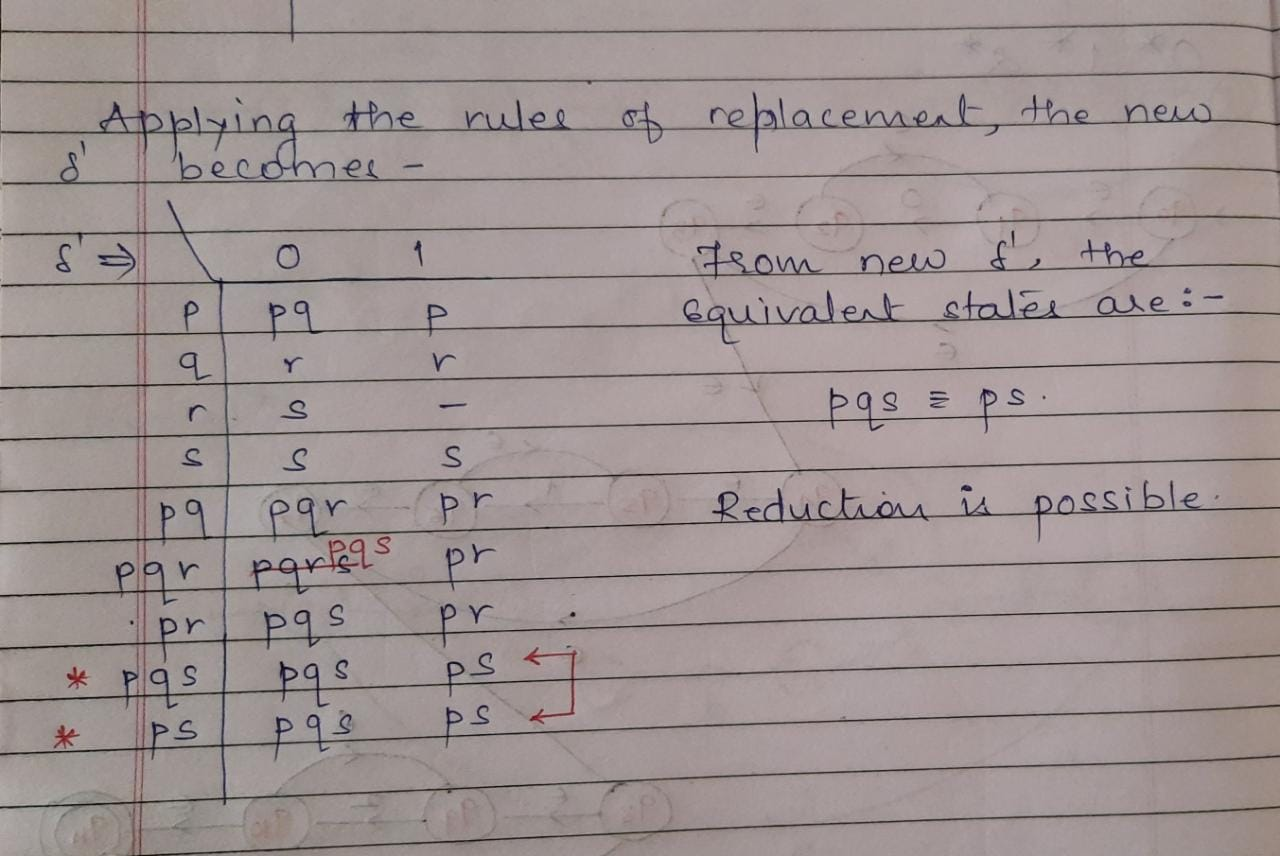 Applying the rules of replacement, the new
δ' becomes -
δ' ⇒ 0 1
p pq p
q r r
r s -
s s s
pq pqr pr
pqr pqrs pqs pr
pr pqs pr
* pqs pqs ps
* ps pqs ps
From new δ', the
equivalent states are :-
pqs ≡ ps.
Reduction is possible.